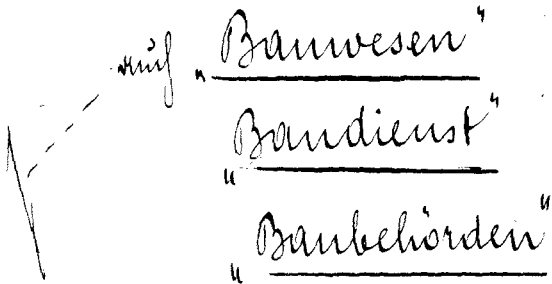 auch „Bauwesen"
„Baudienst"
„Baubehörden"